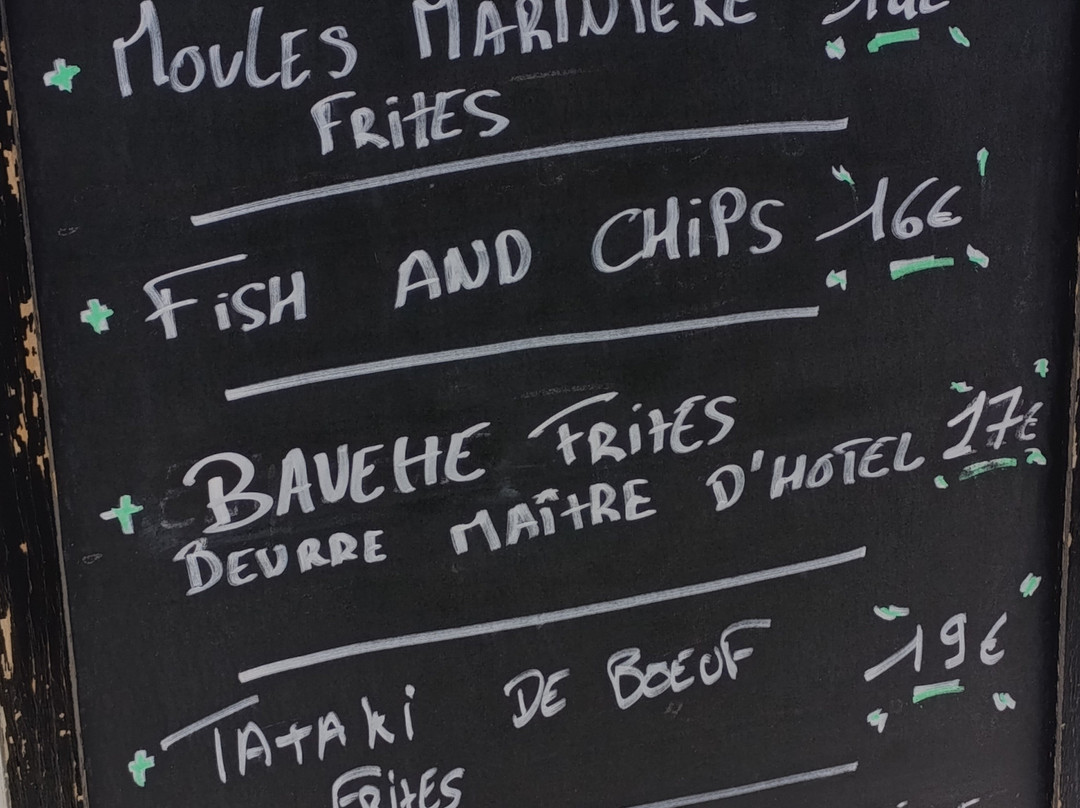 + MOULES MARINIERE
FRITES
+ FISH AND CHIPS 16€
+ BAVEHE FRITES 17€
BEURRE MAÎTRE D'HOTEL
+ TATAKI DE BOEUF 19€
FRITES